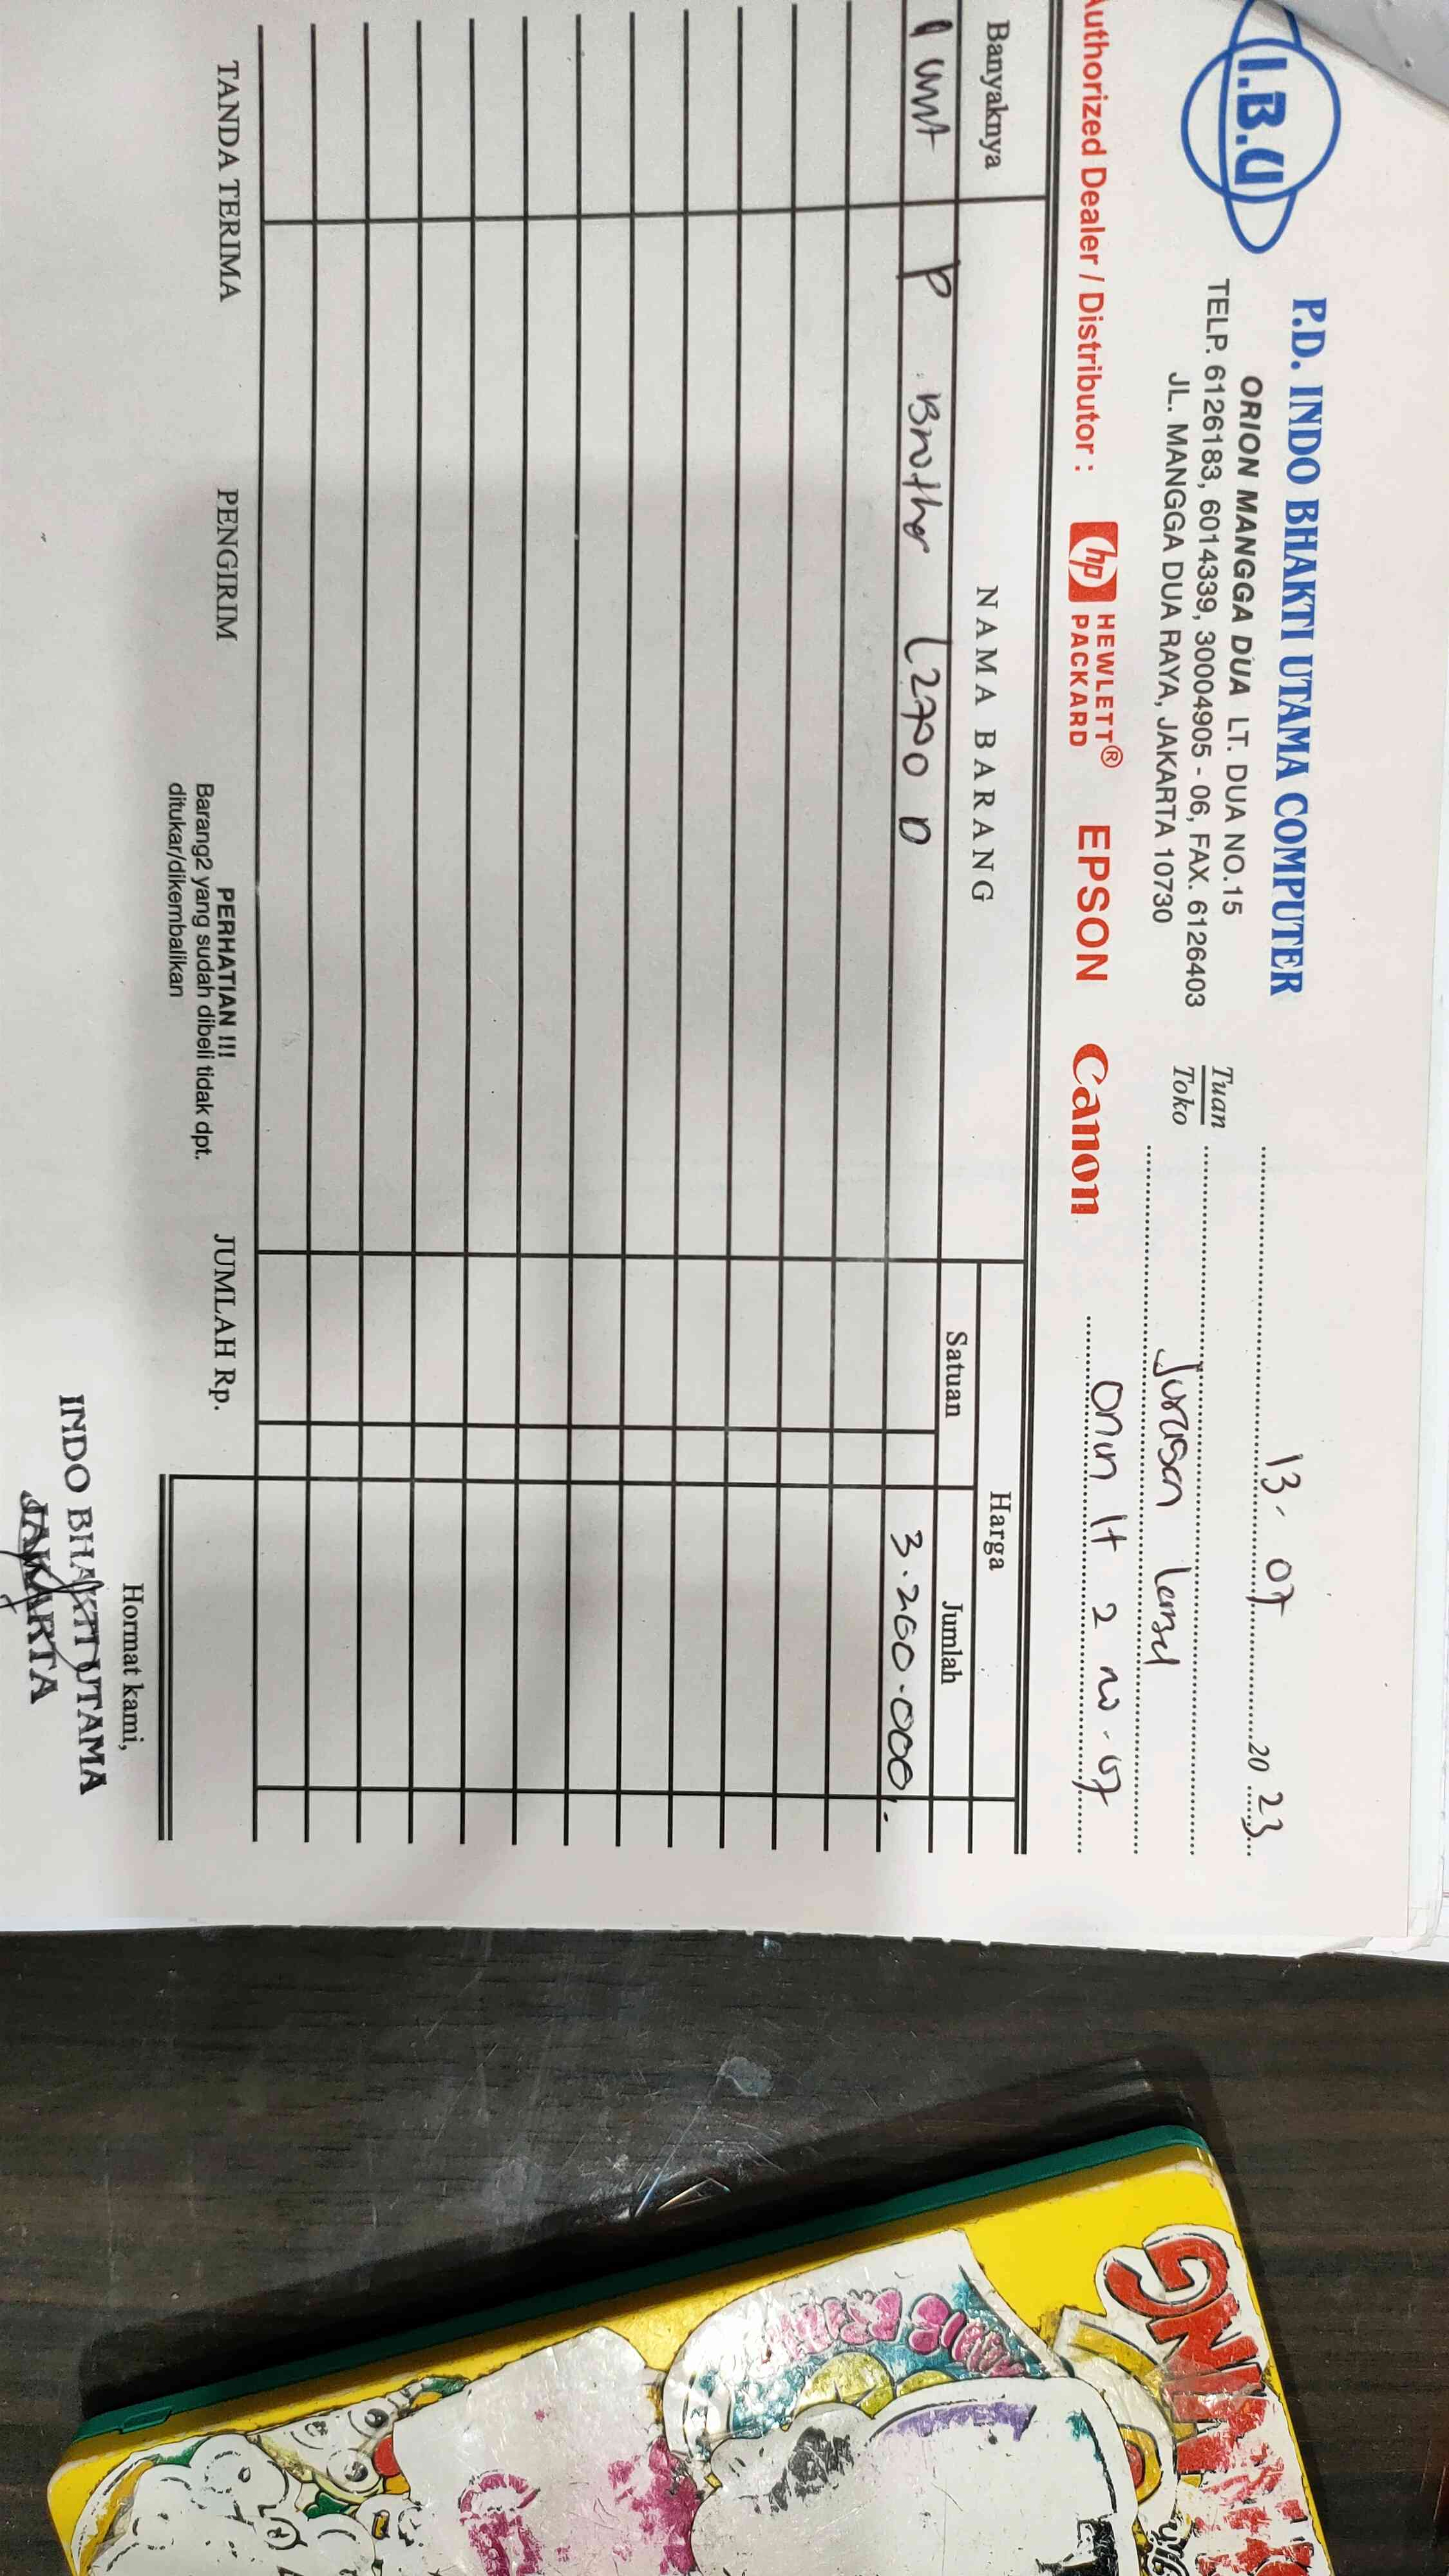 I.B.U
P.D. INDO BHAKTI UTAMA COMPUTER
ORION MANGGA DUA LT. DUA NO.15
TELP. 6126183, 6014339, 30004905 - 06, FAX. 6126403
JL. MANGGA DUA RAYA, JAKARTA 10730
13 - 07 20 23
Tuan
Toko
Jurusan
Authorized Dealer / Distributor :
hp HEWLETT®
PACKARD
EPSON
Canon
lt 2 no. 07
Banyaknya
NAMA BARANG
Harga
Satuan
Jumlah
1 unit P. Brother L2700 D 3.260.000,-
TANDA TERIMA
PENGIRIM
PERHATIAN !!!
Barang2 yang sudah dibeli tidak dpt.
ditukar/dikembalikan
JUMLAH Rp.
Hormat kami,
INDO BHAKTI UTAMA
JAKARTA